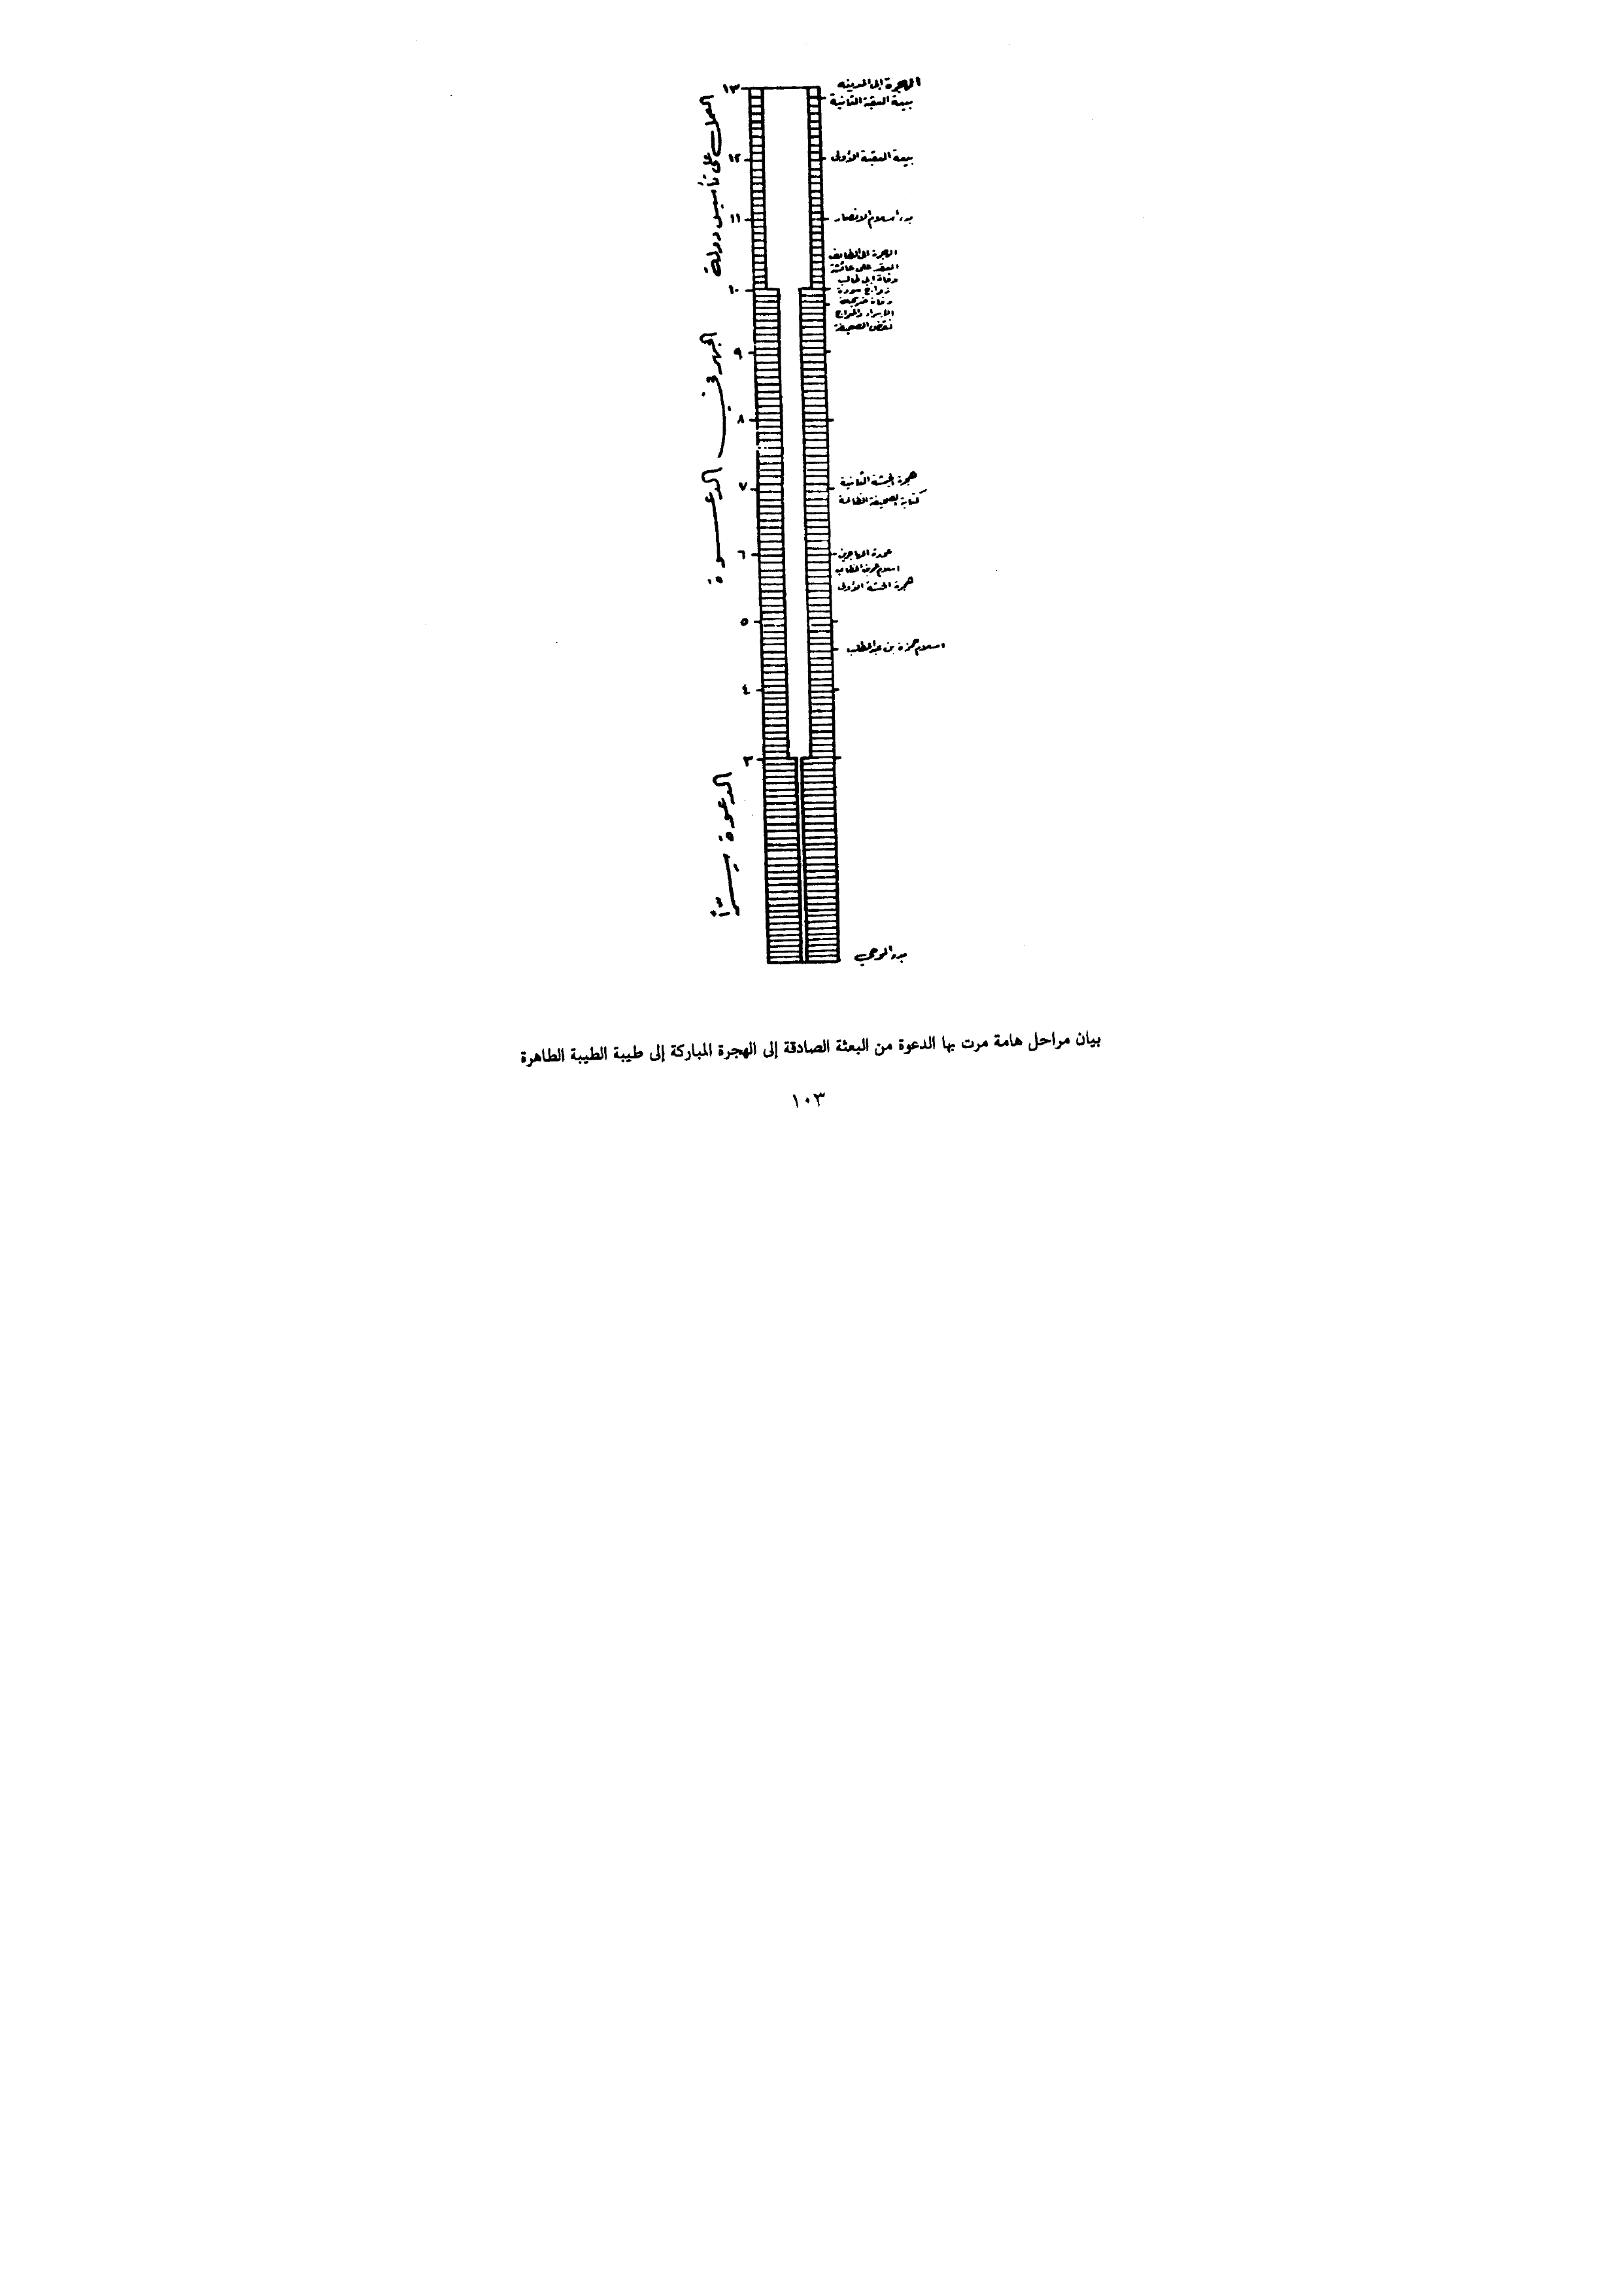 الهجرة إلى المدينة
بيعة العقبة الثانية
بيعة العقبة الأولى
بدء اسلام الانصار
الهجرة الى الطائف
العقد على عائشة
وفاة ابي طالب
زواج سودة
وفاة خديجة
الاسراء والمعراج
نقض الصحيفة
هجرة الحبشة الثانية
كتابة الصحيفة الظالمة
عودة المهاجرين
اسلام عمر بن الخطاب
هجرة الحبشة الأولى
اسلام حمزة بن عبد المطلب
بدء الوحي
١٣
١٢
١١
١٠
٩
٨
٧
٦
٥
٤
٣
العمل على تأسيس دولة
الجهر في الدعوة
الدعوة سرّاً
بيان مراحل هامة مرت بها الدعوة من البعثة الصادقة إلى الهجرة المباركة إلى طيبة الطيبة الطاهرة
١٠٣